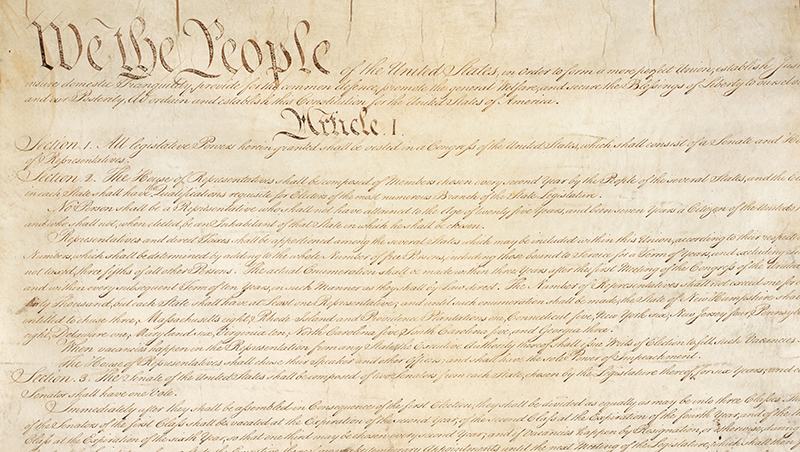 We the People of the United States, in Order to form a more perfect Union, establish Jus
insure domestic Tranquility, provide for the common defence, promote the general Welfare, and secure the Blessings of Liberty to ourselves
and our Posterity, do ordain and establish this Constitution for the United States of America.
Article. I.
Section. 1. All legislative Powers herein granted shall be vested in a Congress of the United States, which shall consist of a Senate and Ho
of Representatives.
Section. 2. The House of Representatives shall be composed of Members chosen every second Year by the People of the several States, and the El
in each State shall have the Qualifications requisite for Electors of the most numerous Branch of the State Legislature.
No Person shall be a Representative who shall not have attained to the Age of twenty five Years, and been seven Years a Citizen of the United S
and who shall not, when elected, be an Inhabitant of that State in which he shall be chosen.
Representatives and direct Taxes shall be apportioned among the several States which may be included within this Union, according to their respect
Numbers, which shall be determined by adding to the whole Number of free Persons, including those bound to Service for a Term of Years, and excluding
not taxed, three fifths of all other Persons. The actual Enumeration shall be made within three Years after the first Meeting of the Congress of the United
and within every subsequent Term of ten Years, in such Manner as they shall by Law direct. The Number of Representatives shall not exceed one for
thirty Thousand, but each State shall have at Least one Representative; and until such enumeration shall be made, the State of New Hampshire shall
entitled to chuse three, Massachusetts eight, Rhode Island and Providence Plantations one, Connecticut five, New York six, New Jersey four, Pennsylv
eight, Delaware one, Maryland six, Virginia ten, North Carolina five, South Carolina five, and Georgia three.
When vacancies happen in the Representation from any State, the Executive Authority thereof shall issue Writs of Election to fill such Vacancies.
The House of Representatives shall chuse their Speaker and other Officers; and shall have the sole Power of Impeachment.
Section. 3. The Senate of the United States shall be composed of two Senators from each State, chosen by the Legislature thereof, for six Years; and e
Senator shall have one Vote.
Immediately after they shall be assembled in Consequence of the first Election, they shall be divided as equally as may be into three Classes. The
of the Senators of the first Class shall be vacated at the Expiration of the second Year, of the second Class at the Expiration of the fourth Year, and of the th
Class at the Expiration of the sixth Year, so that one third may be chosen every second Year; and if Vacancies happen by Resignation, or otherwise, during
temporary Appointments until the next Meeting of the Legislature, which shall then